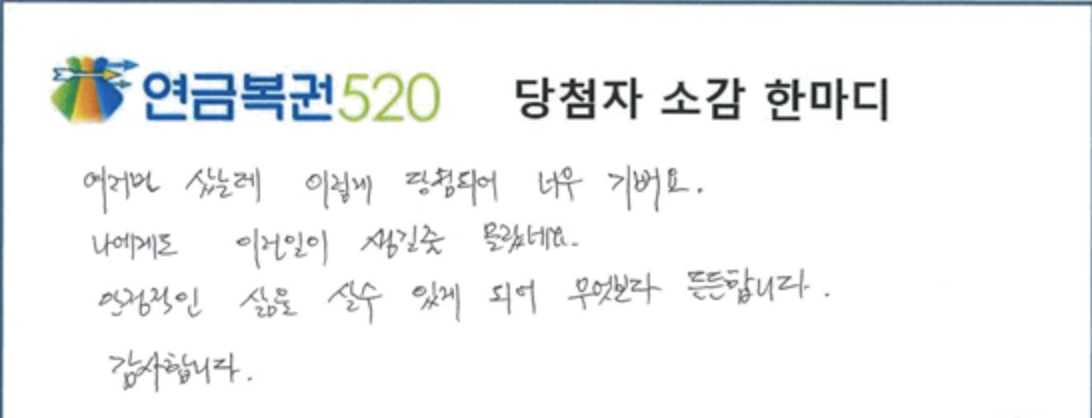 연금복권520 당첨자 소감 한마디
여러번 샀는데 이렇게 당첨되어 너무 기뻐요.
나에게도 이런일이 생길줄 몰랐네요.
안정적인 삶을 살수 있게 되어 무엇보다 든든합니다.
감사합니다.